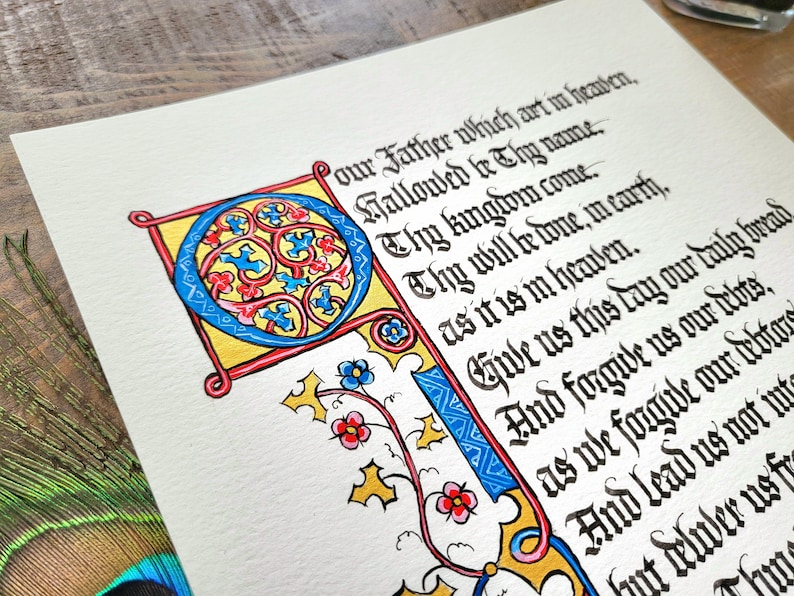 Oour Father which art in heaven,
Hallowed be Thy name,
Thy kingdom come.
Thy will be done, in earth,
as it is in heaven.
Give us this day our daily bread,
And forgive us our debts,
as we forgive our debtors
And lead us not into
but deliver us
Thine